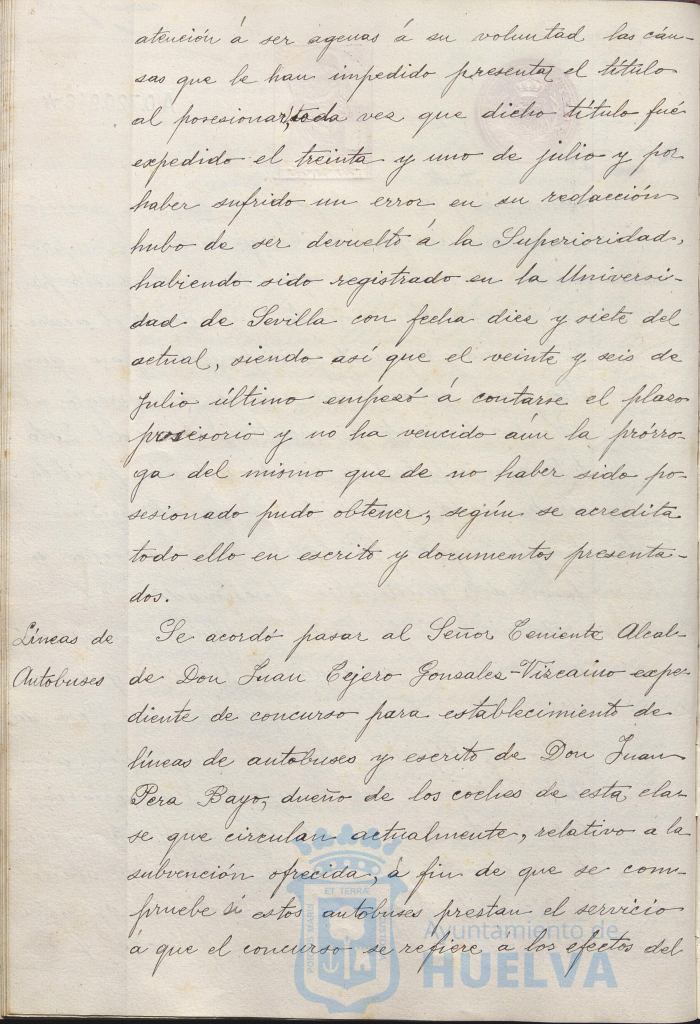 atención á ser agenas á su voluntad las cáu-
sas que le han impedido presentar el título
al posesionar, toda vez que dicho título fué
expedido el treinta y uno de julio y por
haber sufrido un error en su redacción
hubo de ser devuelto á la Superioridad,
habiendo sido registrado en la Universi-
dad de Sevilla con fecha diez y siete del
actual, siendo así que el veinte y seis de
Julio último empezó á contarse el plazo
posesorio y no ha vencido aún la prórro-
ga del mismo que de no haber sido po-
sesionado pudo obtener, según se acredita
todo ello en escrito y documentos presenta-
dos.
Líneas de
Autobuses
Se acordó pasar al Señor Teniente Alcal-
de Don Juan Tejero Gonzalez-Vizcaino expe-
diente de concurso para establecimiento de
líneas de autobuses y escrito de Don Juan
Pera Bayo, dueño de los coches de esta cla-
se que circulan actualmente, relativo a la
subvención ofrecida, á fin de que se com-
pruebe si estos autobuses prestan el servicio
á que el concurso se refiere á los efectos del
ET TERRÆ
Ayuntamiento de
HUELVA